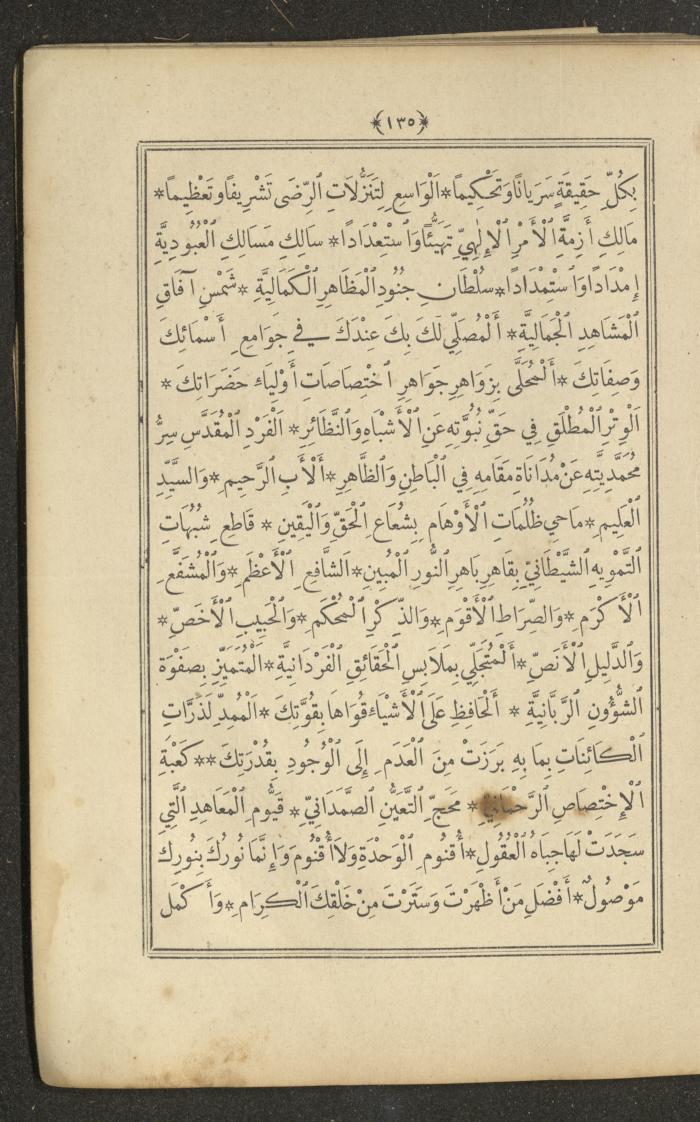 ﴿١٣٥﴾
بِكُلِّ حَقِيقَةٍ سَرَيَانًا وَتَحْكِيمًا * اَلْوَاسِعِ لِتَنَزُّلَاتِ ٱلرِّضَى تَشْرِيفًا وَتَعْظِيمًا *
مَالِكِ أَزِمَّةِ ٱلْأَمْرِ ٱلْإِلٰهِيِّ تَهَيُّئًا وَٱسْتِعْدَادًا * سَالِكِ مَسَالِكِ ٱلْعُبُودِيَّةِ
إِمْدَادًا وَٱسْتِمْدَادًا * سُلْطَانِ جُنُودِ ٱلْمَظَاهِرِ ٱلْكَمَالِيَّةِ * شَمْسِ آفَاقِ
ٱلْمَشَاهِدِ ٱلْجَمَالِيَّةِ * أَلْمُصَلِّي لَكَ بِكَ عِنْدَكَ فِي جَوَامِعِ أَسْمَائِكَ
وَصِفَاتِكَ * أَلْمُحَلَّى بِزَوَاهِرِ جَوَاهِرِ ٱخْتِصَاصَاتِ أَوْلِيَاءِ حَضَرَاتِكَ *
اَلْوِتْرِ ٱلْمُطْلَقِ فِي حَقِّ نُبُوَّتِهِ عَنِ ٱلْأَشْبَاهِ وَٱلنَّظَائِرِ * اَلْفَرْدِ ٱلْمُقَدَّسِ سِرُّ
مُحَمَّدِيَّتِهِ عَنْ مُدَانَاةِ مَقَامِهِ فِي ٱلْبَاطِنِ وَٱلظَّاهِرِ * أَلْأَبِ ٱلرَّحِيمِ * وَٱلسَّيِّدِ
ٱلْعَلِيمِ * مَاحِي ظُلُمَاتِ ٱلْأَوْهَامِ بِشُعَاعِ ٱلْحَقِّ وَٱلْيَقِينِ * قَاطِعِ شُبُهَاتِ
ٱلتَّمْوِيهِ ٱلشَّيْطَانِيِّ بِقَاهِرِ بَاهِرِ ٱلنُّورِ ٱلْمُبِينِ * اَلشَّافِعِ ٱلْأَعْظَمِ * وَٱلْمُشَفَّعِ
ٱلْأَكْرَمِ * وَٱلصِّرَاطِ ٱلْأَقْوَمِ * وَٱلذِّكْرِ ٱلْمُحْكَمِ * وَٱلْحَبِيبِ ٱلْأَخَصِّ *
وَٱلدَّلِيلِ ٱلْأَنَصِّ * أَلْمُتَجَلِّي بِمَلَابِسِ ٱلْحَقَائِقِ ٱلْفَرْدَانِيَّةِ * اَلْمُتَمَيِّزِ بِصَفْوَةِ
ٱلشُّؤُونِ ٱلرَّبَّانِيَّةِ * أَلْحَافِظِ عَلَى ٱلْأَشْيَاءِ قُوَاهَا بِقُوَّتِكَ * اَلْمُمِدِّ لِذَرَّاتِ
ٱلْكَائِنَاتِ بِمَا بِهِ بَرَزَتْ مِنَ ٱلْعَدَمِ إِلَى ٱلْوُجُودِ بِقُدْرَتِكَ ** كَعْبَةِ
ٱلْإِخْتِصَاصِ ٱلرَّحْمَانِيِّ * مَحَجِّ ٱلتَّعَيُّنِ ٱلصَّمَدَانِيِّ * قَيُّومِ ٱلْمَعَاهِدِ ٱلَّتِي
سَجَدَتْ لَهَا جِبَاهُ ٱلْعُقُولِ * أُقْنُومِ ٱلْوَحْدَةِ وَلَا أُقْنُومَ وَإِنَّمَا نُورُكَ بِنُورِكَ
مَوْصُولٌ * أَفْضَلِ مَنْ أَظْهَرْتَ وَسَتَرْتَ مِنْ خَلْقِكَ ٱلْكِرَامِ * وَأَكْمَلِ